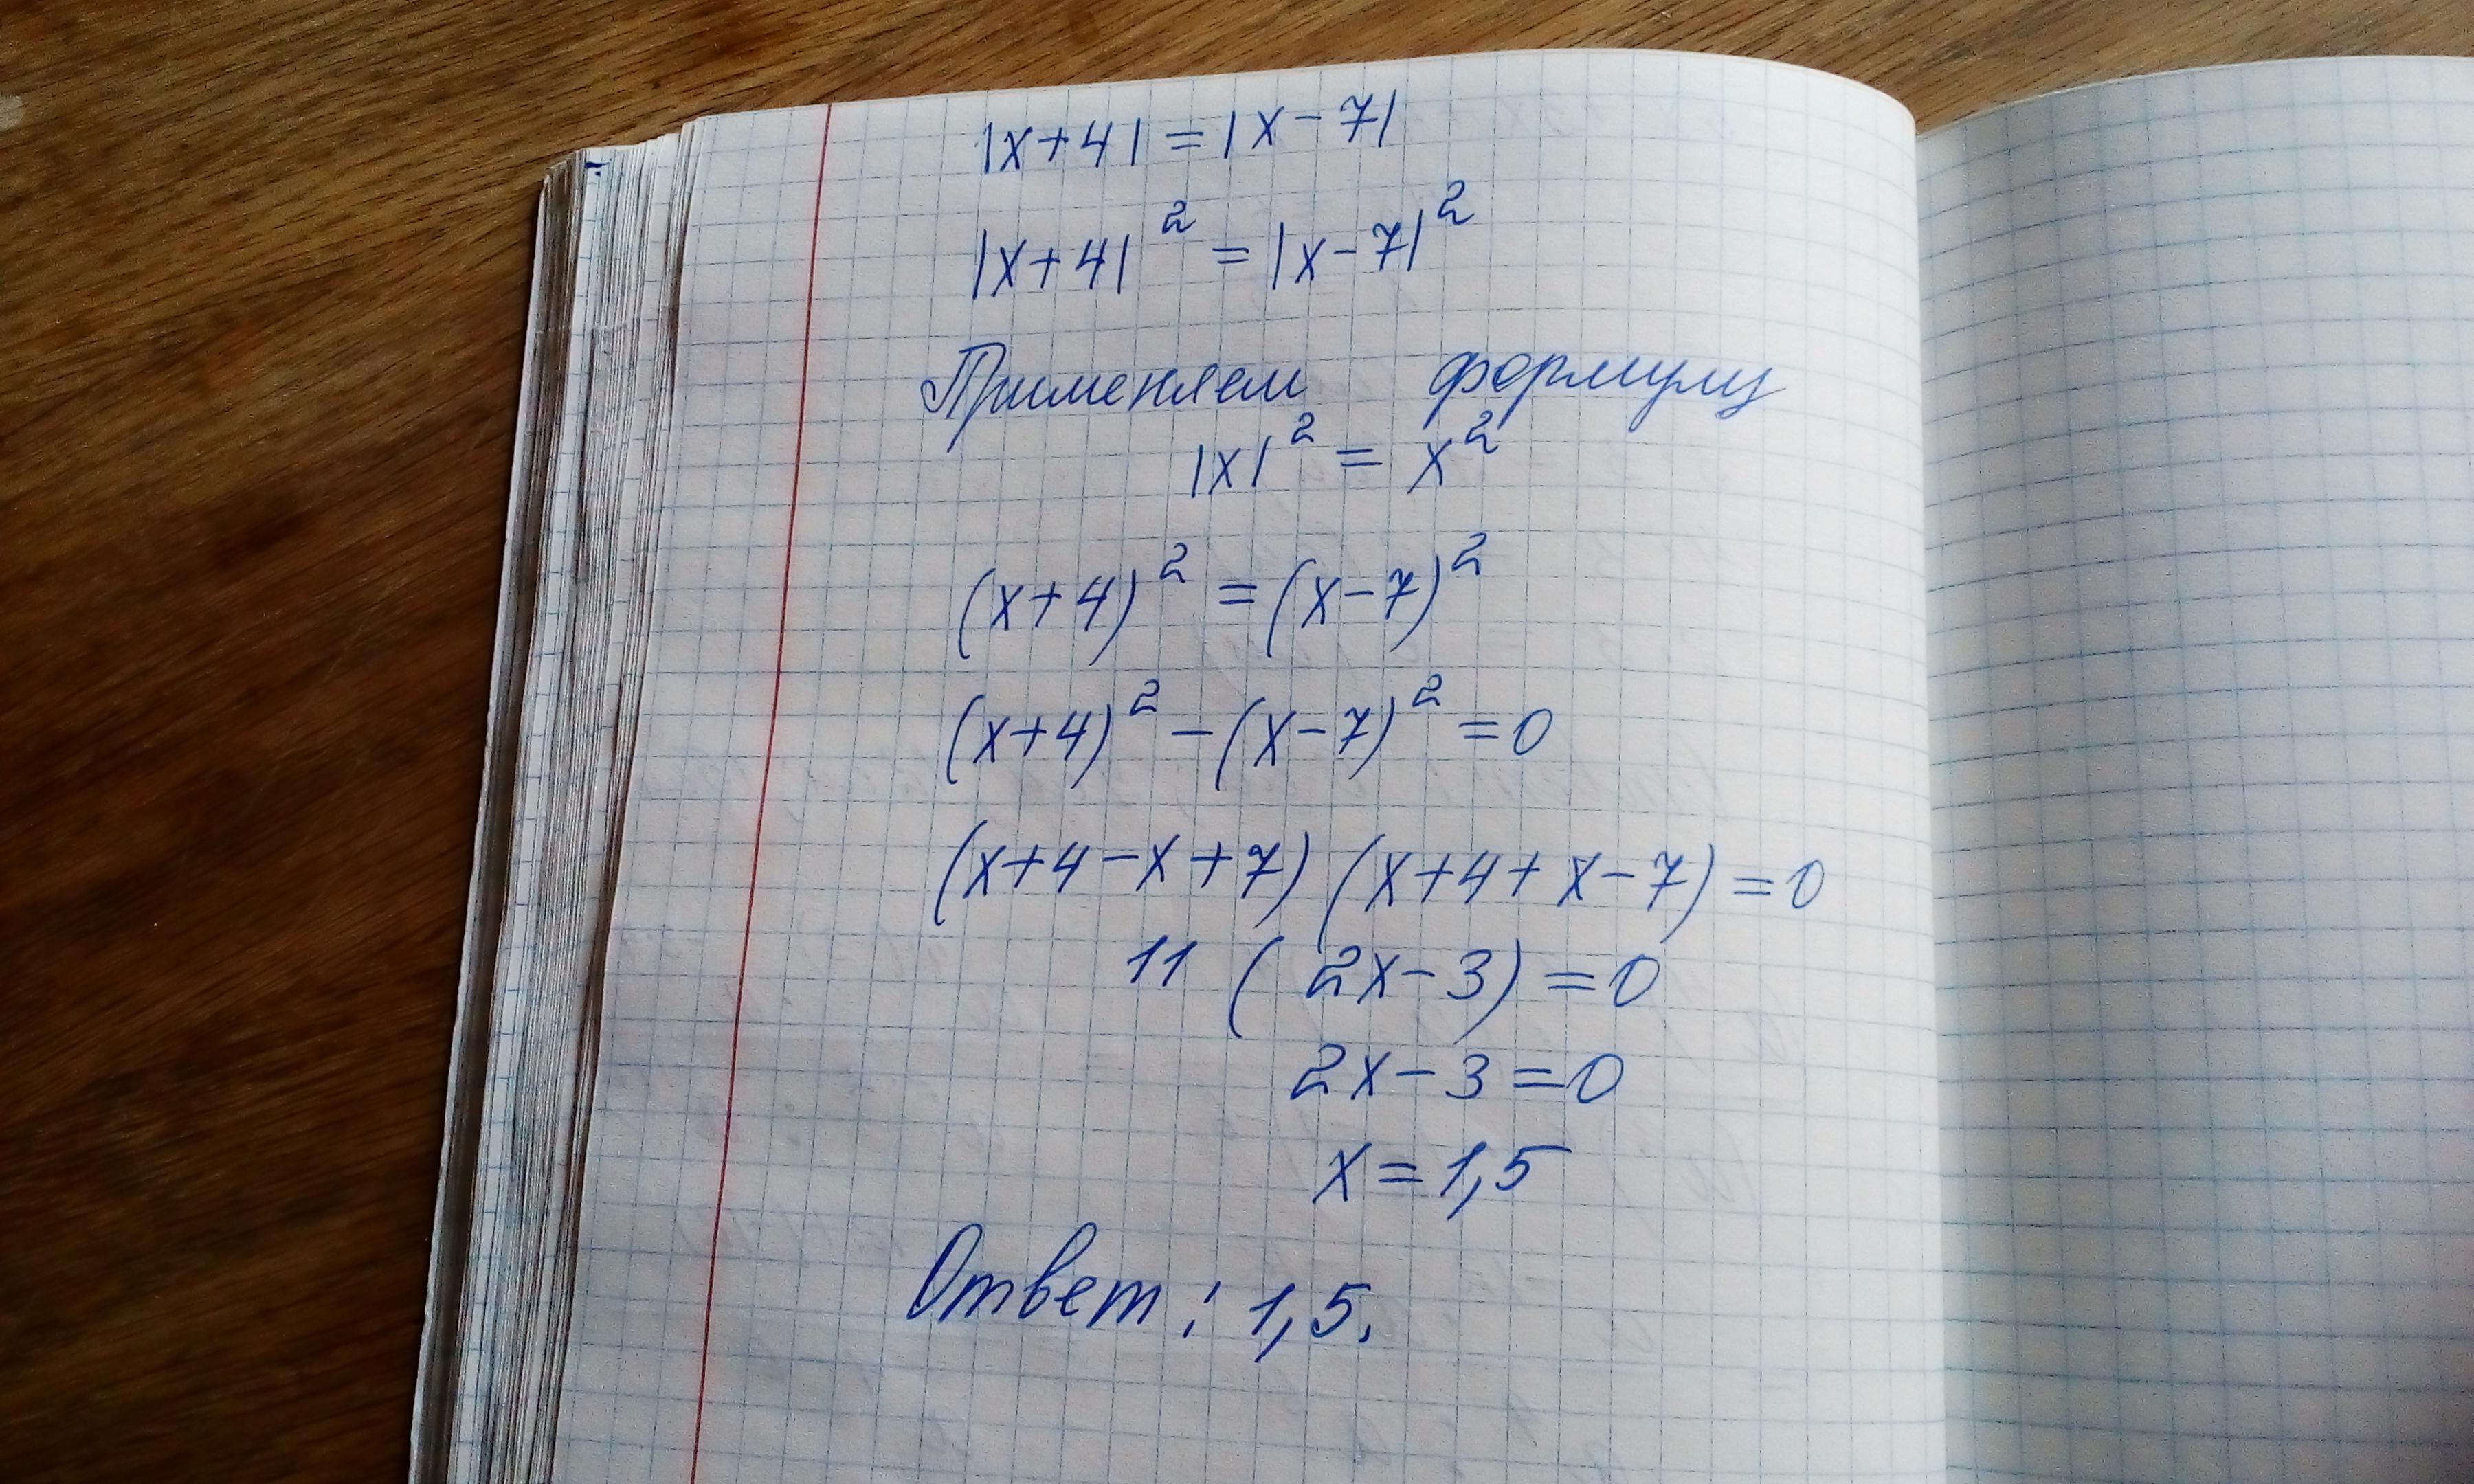 |x+4| = |x-7|
|x+4|² = |x-7|²
Применяем формулу
|x|² = x²
(x+4)² = (x-7)²
(x+4)² - (x-7)² = 0
(x+4-x+7) (x+4+x-7) = 0
11 (2x-3) = 0
2x-3 = 0
x = 1,5
Ответ: 1,5.